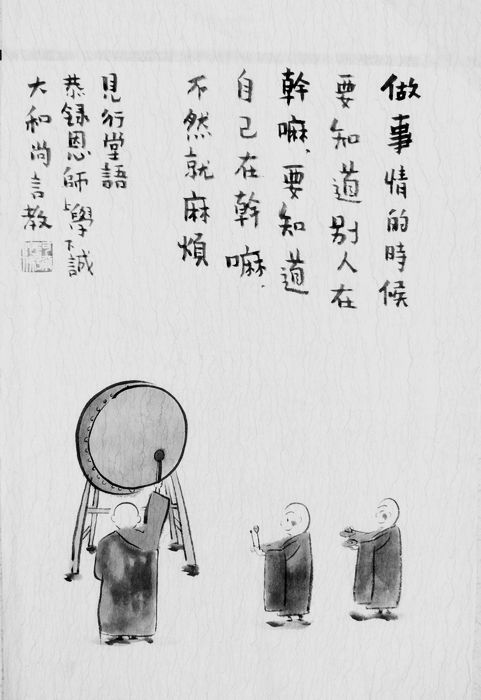 做事情的時候
要知道別人在
幹嘛，要知道
自己在幹嘛，
不然就麻煩
見行堂語
恭錄恩師上學下誠
大和尚言教